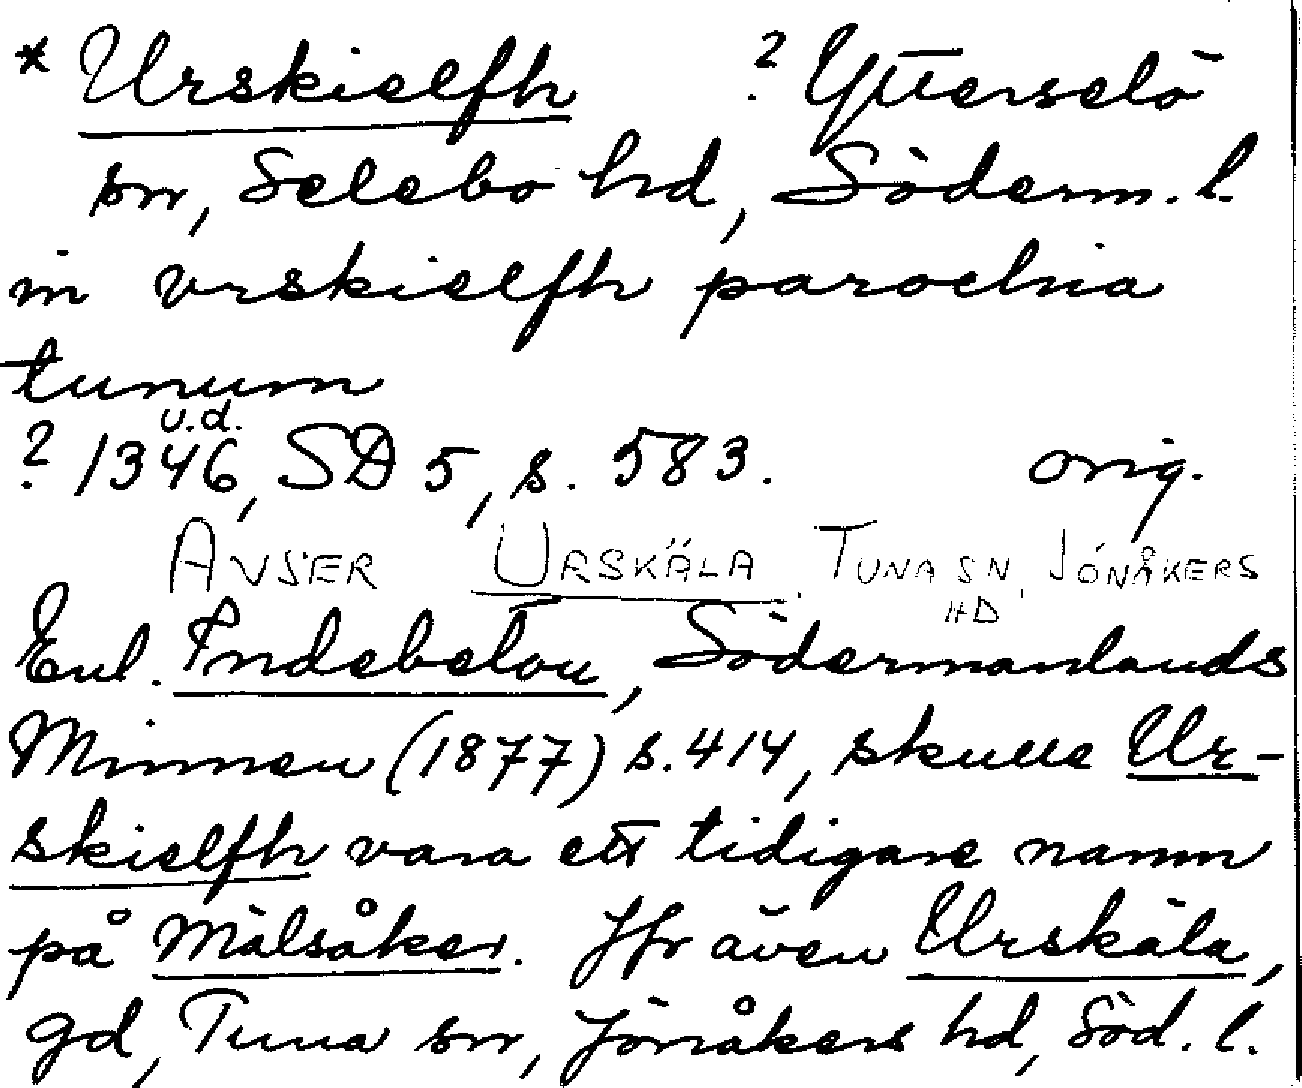 * Urskielfh ? Ytterselö
sn, Selebo hd, Söderm. l.
in vrskielfh parochia
tunum
u.d.
? 1346, SD 5, s. 583. orig.
AVSER URSKÄLA, TUNA SN, JÖNÅKERS
HD
Enl. Indebetou, Södermanlands
Minnen (1877) s. 414, skulle Ur-
skielfh vara ett tidigare namn
på Mälsåker. Jfr även Urskäla,
gd, Tuna sn, Jönåkers hd, Söd. l.